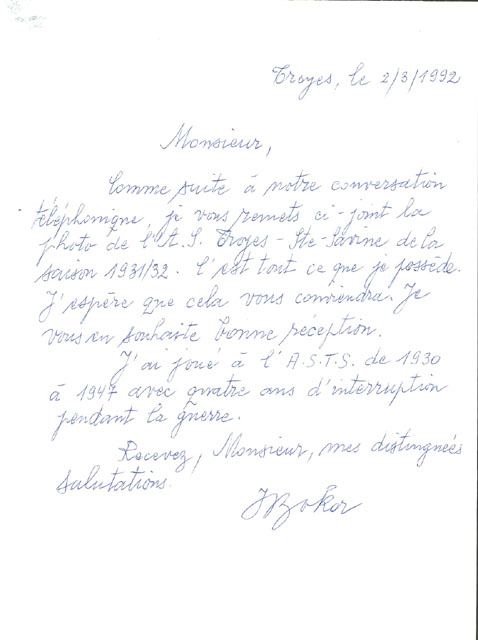 Troyes, le 2/3/1992
Monsieur,
Comme suite à notre conversation
téléphonique, je vous remets ci-joint la
photo de l'A.S. Troyes-Ste-Savine de la
saison 1931/32. C'est tout ce que je possède.
J'espère que cela vous conviendra. Je
vous en souhaite bonne réception.
J'ai joué à l'A.S.T.S. de 1930
à 1947 avec quatre ans d'interruption
pendant la guerre.
Recevez, Monsieur, mes distinguées
salutations.